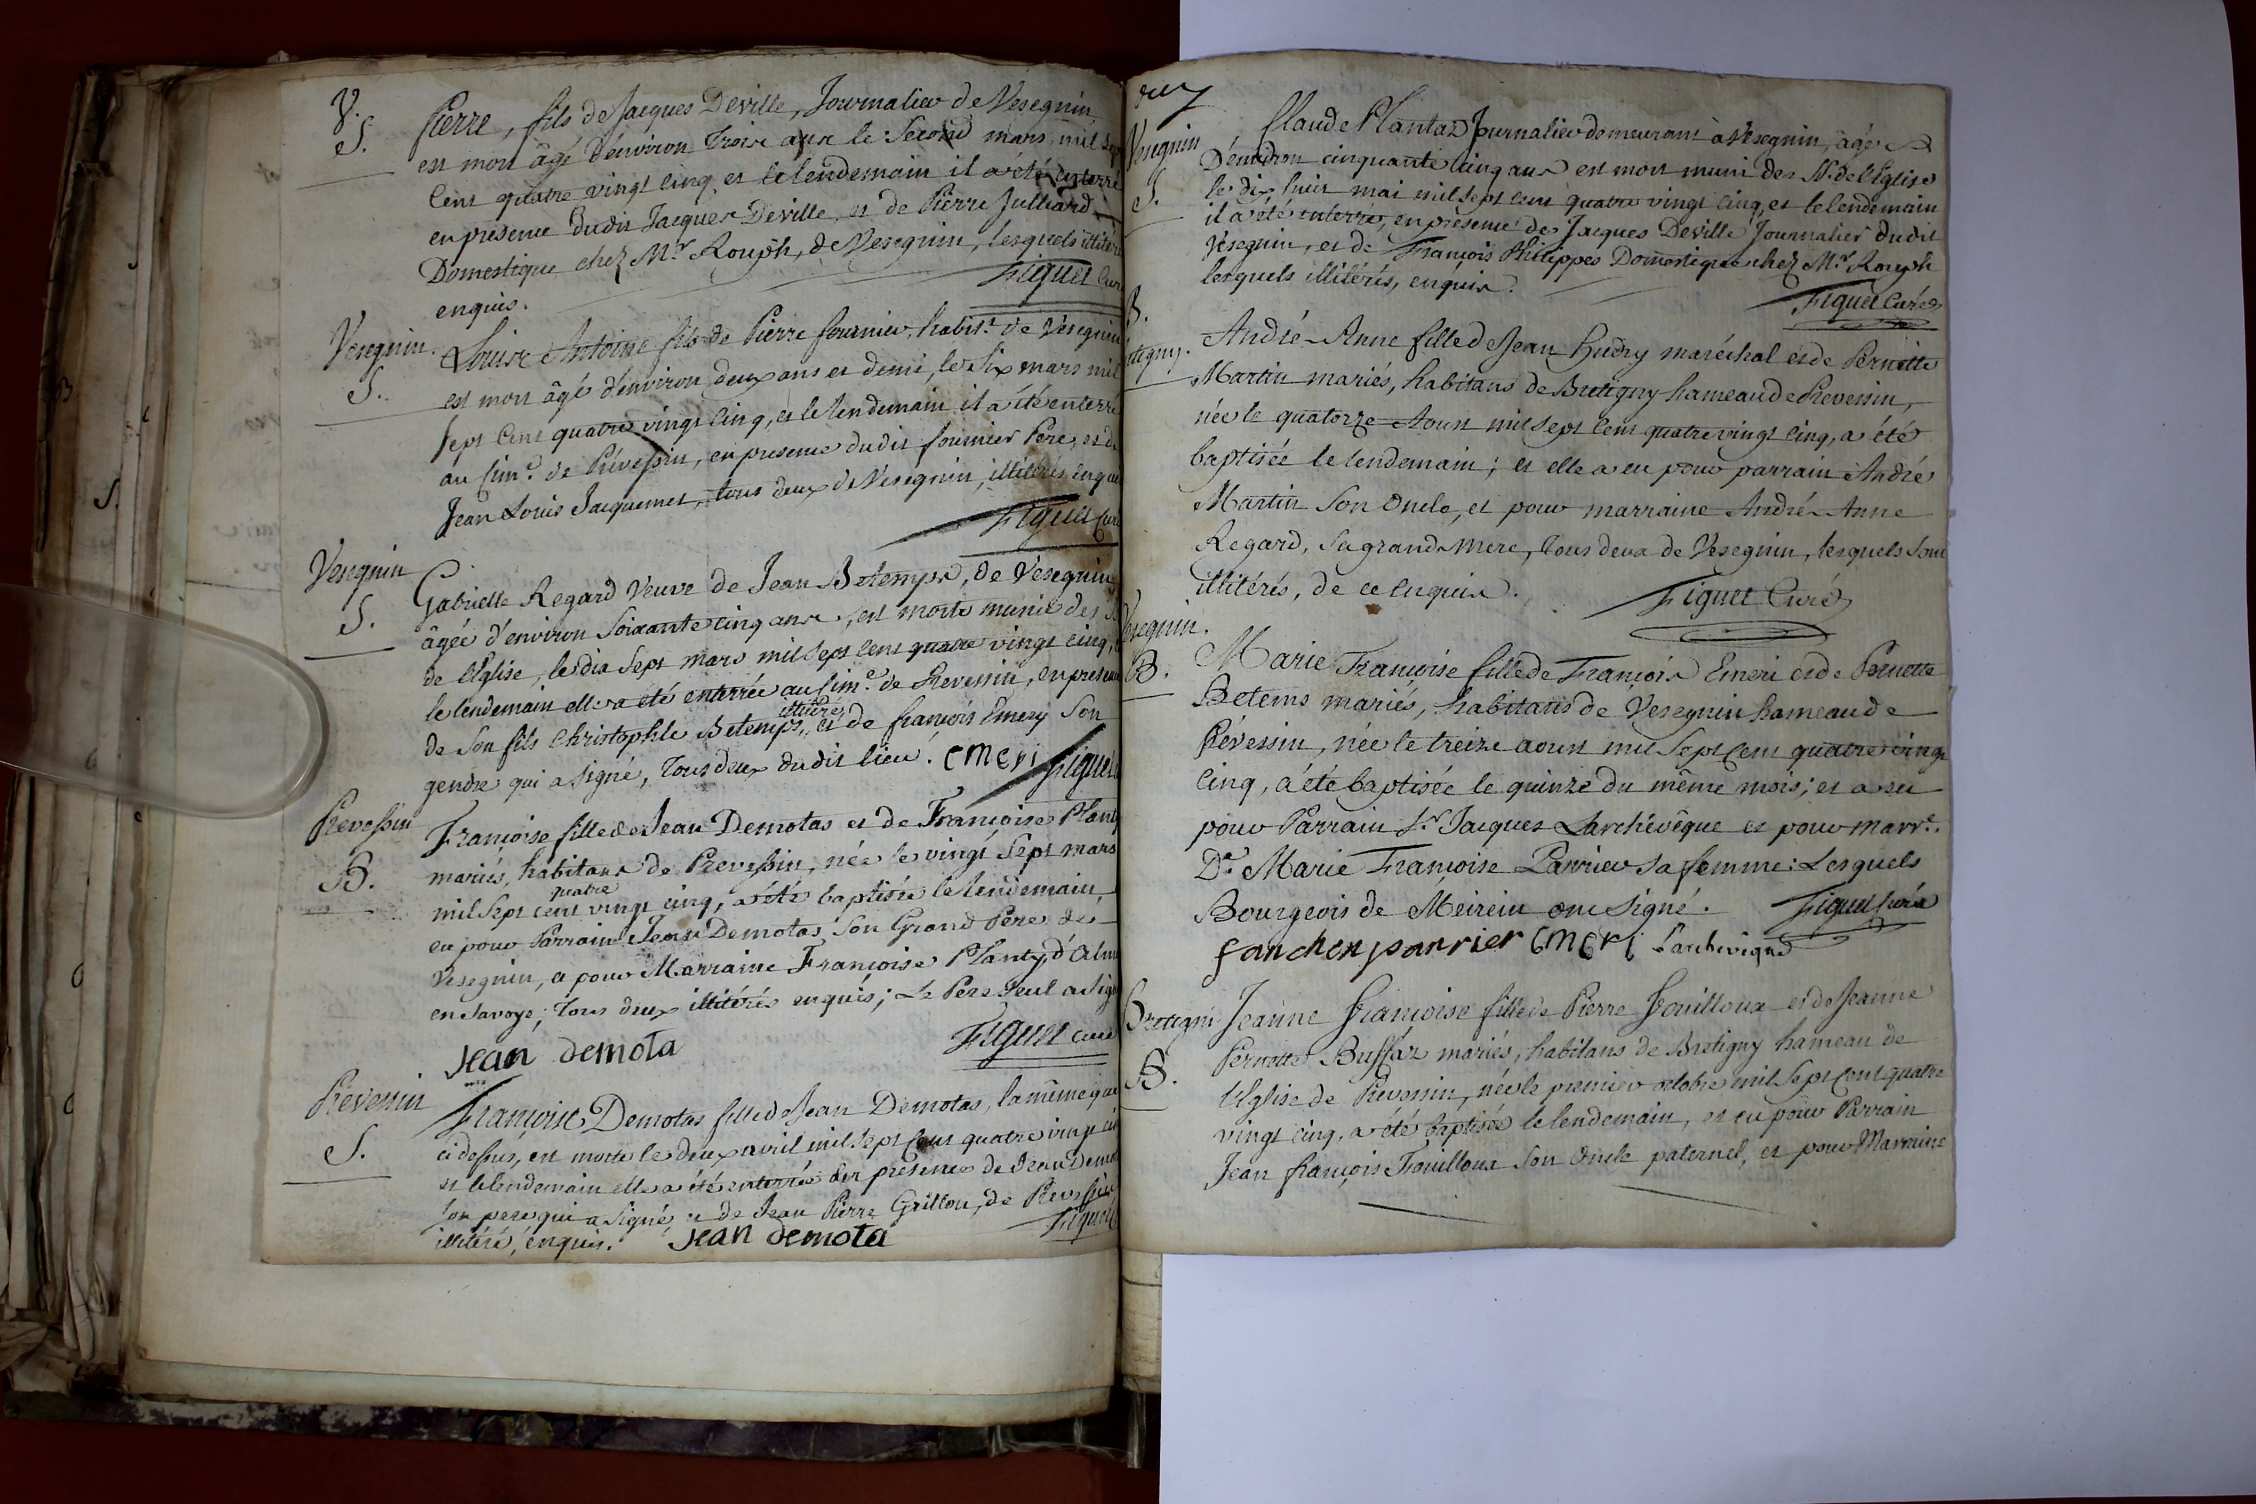 V.
S.
Pierre, fils de Jacques Deville, Journalier de Vesegnin
est mort âgé d'environ Trois ans le Second mars, mil sept
Cent quatre vingt cinq, et le lendemain il a été enterré
en présence dudit Jacques Deville, et de Pierre Julliard
Domestique chez Mr. Rouph, de Vesegnin, lesquels illitérés
enquis. Figuet Curé
Vesegnin.
S.
Louis Antoine fils de Pierre fournier, habit.t de Vesegnin
est mort âgé d'environ deux ans et demi, le Six mars mil
Sept Cent quatre vingt cinq, et le lendemain il a été enterré
au Cim.e de Prévessin, en presence dudit fournier Pere, et de
Jean Louis Jacquemet, tous deux de Vesegnin, illitérés enquis
Figuet Curé
Vesegnin
S.
Gabrielle Regard Veuve de Jean Betemps, de Vésegnin
âgée d'environ Soixante cinq ans, est morte munie des S.
de l'Eglise, le dix Sept mars mil Sept Cent quatre vingt cinq, et
le lendemain elle a été enterrée au Cim.e de Prevessin, en presence
de Son fils Christophle Betemps, illitéré et de françois Emery Son
gendre qui a Signé, Tous deux dudit lieu. emeri Figuet
Prevessin
B.
Françoise fille de Jean Demotas et de Françoise Planty
mariés, habitans de Prevessin, née le vingt Sept mars
mil Sept cent quatre vingt cinq, a été baptisée le lendemain,
eu pour Parrain Jean Demotas Son Grand Pere de
Vesegnin, a pour Marraine Françoise Planty, d'
en Savoye; Tous deux illitérés enquis; Le Pere Seul a Signé
Figuet curé
jean demota
Prévessin
S.
Françoise Demotas fille de Jean Demotas, la même que
ci dessus, est morte le deux avril mil Sept Cent quatre vingt cinq
et le lendemain elle a été enterrée en présence de Jean Demotas
Son pere qui a Signé, et de Jean Pierre Grillou, de Prevessin
illitéré, enquis. jean demota Figuet
Vesegnin
S.
Claude Plantaz Journalier demeurant à Vesegnin, âgé
D'environ cinquante cinq ans est mort muni des St. de l'Eglise
le dix huit mai mil sept cent quatre vingt cinq, et le lendemain
il a été enterré, en présence de Jacques Deville Journalier dudit
Vesegnin, et de François Philippes Domestique chez Mr. Rouph
lesquels illitérés, enquis.
Figuet Curé
B.
André-Anne fille de Jean Hudry maréchal et de Pernette
Martin mariés, habitans de Bretigny hameau de Prevessin,
née le quatorze Aoust mil Sept Cent quatre vingt cinq, a été
baptisée le lendemain; et elle a eu pour parrain André
Martin Son Oncle, et pour marraine André-Anne
Regard, Sa grand-Mere, Tous deux de Vesegnin, lesquels Sont
illitérés, de ce enquis. Figuet Curé
Vesegnin.
B.
Marie Françoise fille de François Emeri et de Pernette
Betems mariés, habitans de Vesegnin hameau de
Prévessin, née le treize aoust mil Sept Cent quatre vingt
Cinq, a été baptisée le quinze du même mois; et a eu
pour Parrain Sr. Jacques Larchévêque et pour marr.e
De. Marie Françoise Parrier Sa femme: Lesquels
Bourgeois de Meirein ont Signé. Figuet Curé
fanchon parrier emeri Larchevêque
Bretigni
B.
Jeanne Françoise fille de Pierre Fouilloux et de Jeanne
Pernette Buffaz mariés, habitans de Bretigny hameau de
l'Eglise de Prevessin, née le premier octobre mil Sept Cent quatre
vingt cinq, a été baptisée le lendemain, et eu pour Parrain
Jean françois Fouilloux Son Oncle paternel, et pour Marraine